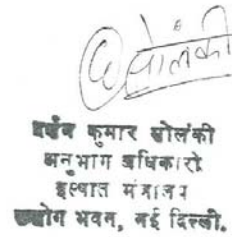 सोलंकी
कुमार सोलंकी
अनुभाग अधिकारी
इस्पात मंत्रालय
उद्योग भवन, नई दिल्ली.